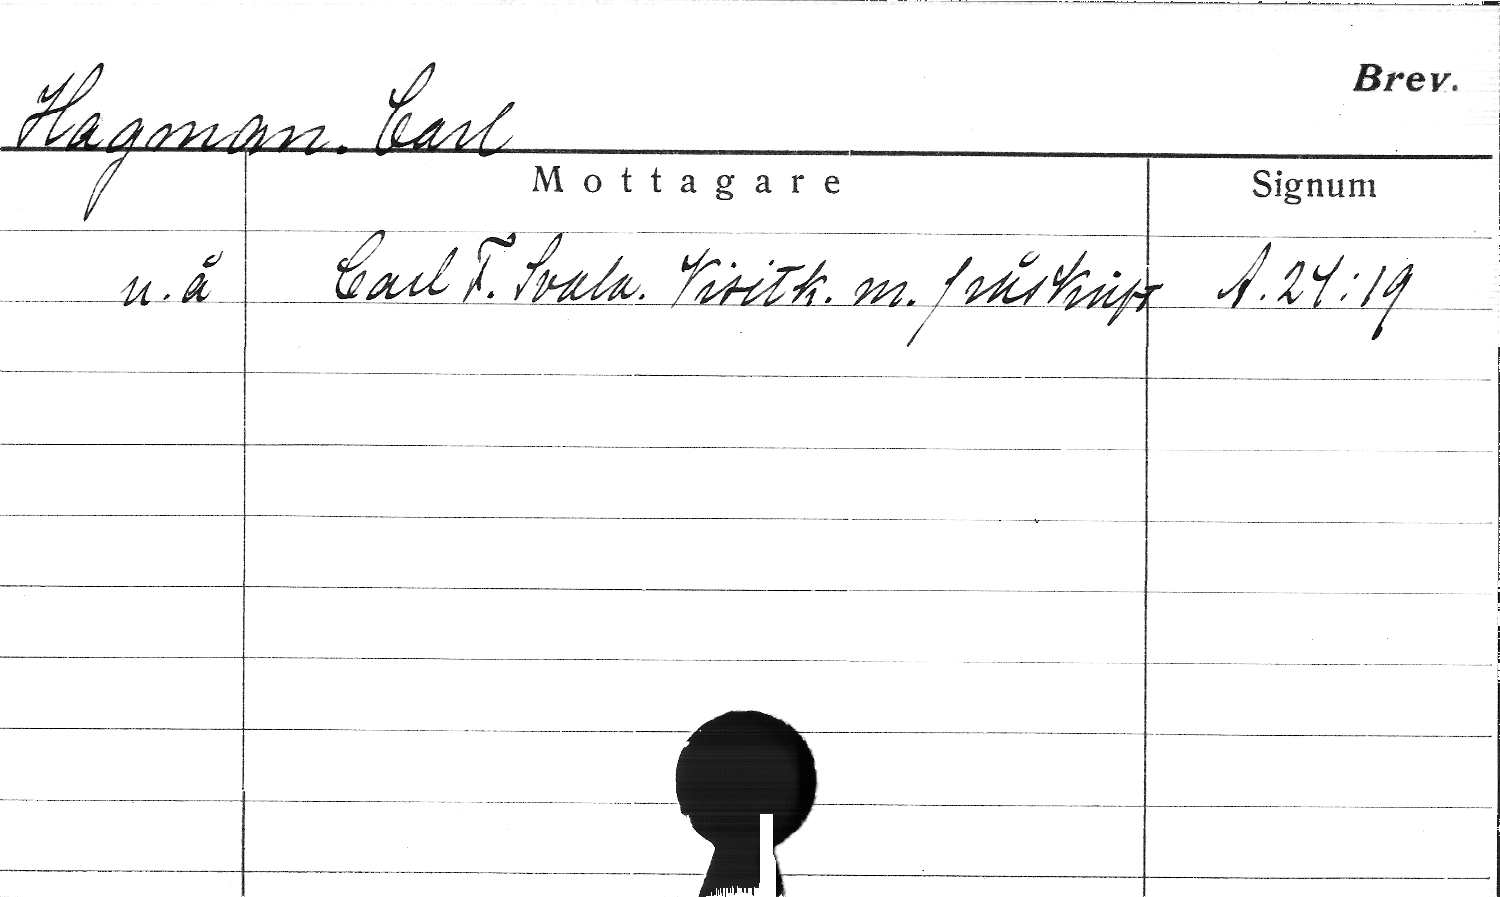 Brev.
Hagman. Carl
Mottagare Signum
u.å Carl F. Svala. Visitk. m. påskrift A.24:19